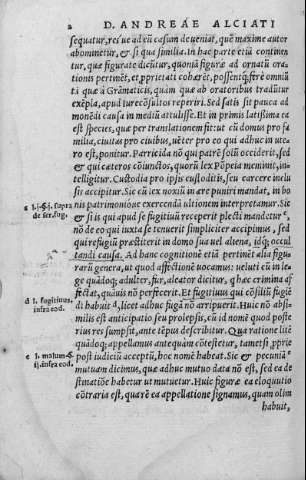 2 D. ANDREAE ALCIATI
sequatur, res ue ad eũ casum deueniat, quẽ maxime autor
abominetur, & si qua similia. In hac parte etiã continen
tur, quæ figurate dicũtur, quoniã figuræ ad ornatũ ora
tionis pertinẽt, et ꝓprietati cohærẽt, possentq́; ferè omnia
tã quæ à Grãmaticis, quàm quæ ab oratoribus tradũtur
exẽpla, apud iurecõsultos reperiri. Sed satis sit pauca ad
monẽdi causa in mediũ attulisse. Et in primis latissima ea
est species, quæ per translationem fit: ut cũ domus pro fa
milia, ciuitas pro ciuibus, uẽter pro eo qui adhuc in ute
ro est, ponitur. Parricida nõ qui patrẽ solũ occiderit, sed
& qui cæteros cõiunctos, quorũ lex Põpeia meminit, in-
telligitur. Custodia pro ipsis custoditis, seu carcere inclu
sis accipitur. Sic cũ lex noxiã in ære puniri mandat, in bo
nis patrimonioque exercendã ultionem interpretamur. Sic
& si is qui apud se fugitiuũ receperit plecti mandetur c,
nõ de eo qui iuxta se tenuerit simpliciter accipimus, sed
qui refugiũ præstiterit in domo sua uel aliena, idq́; occul
tandi causa. Ad hanc cognitionẽ etiã pertinẽt alia figu-
rarũ genera, ut quod affectionẽ uocamus: ueluti cũ in le
ge quādoq; adulter, fur, aleator dicitur, qui hæc crimina af
fectat, quāuis nõ perfecerit. Et fugitiuus qui cõsiliũ fugiẽ
di habuit d, licet adhuc fugā nõ arripuerit. Huic nõ absi-
milis est anticipatio seu prolepsis, cũ id nomẽ quod poste
rius res sumpsit, ante tẽpus describitur. Qua ratione litẽ
quādoq; appellamus antequàm cõtestetur, tametsi ꝓprie
post iudiciũ acceptũ, hoc nomẽ habeat. Sic & pecuniã e
mutuam dicimus, quæ adhuc mutuo data nõ est, sed ea de
stinatiõe habetur ut mutuetur. Huic figuræ ea eloquutio
cõtraria est, quare ea appellatione signamus, quam olim
habuit,
d l. fugitiuus.
infra eod.